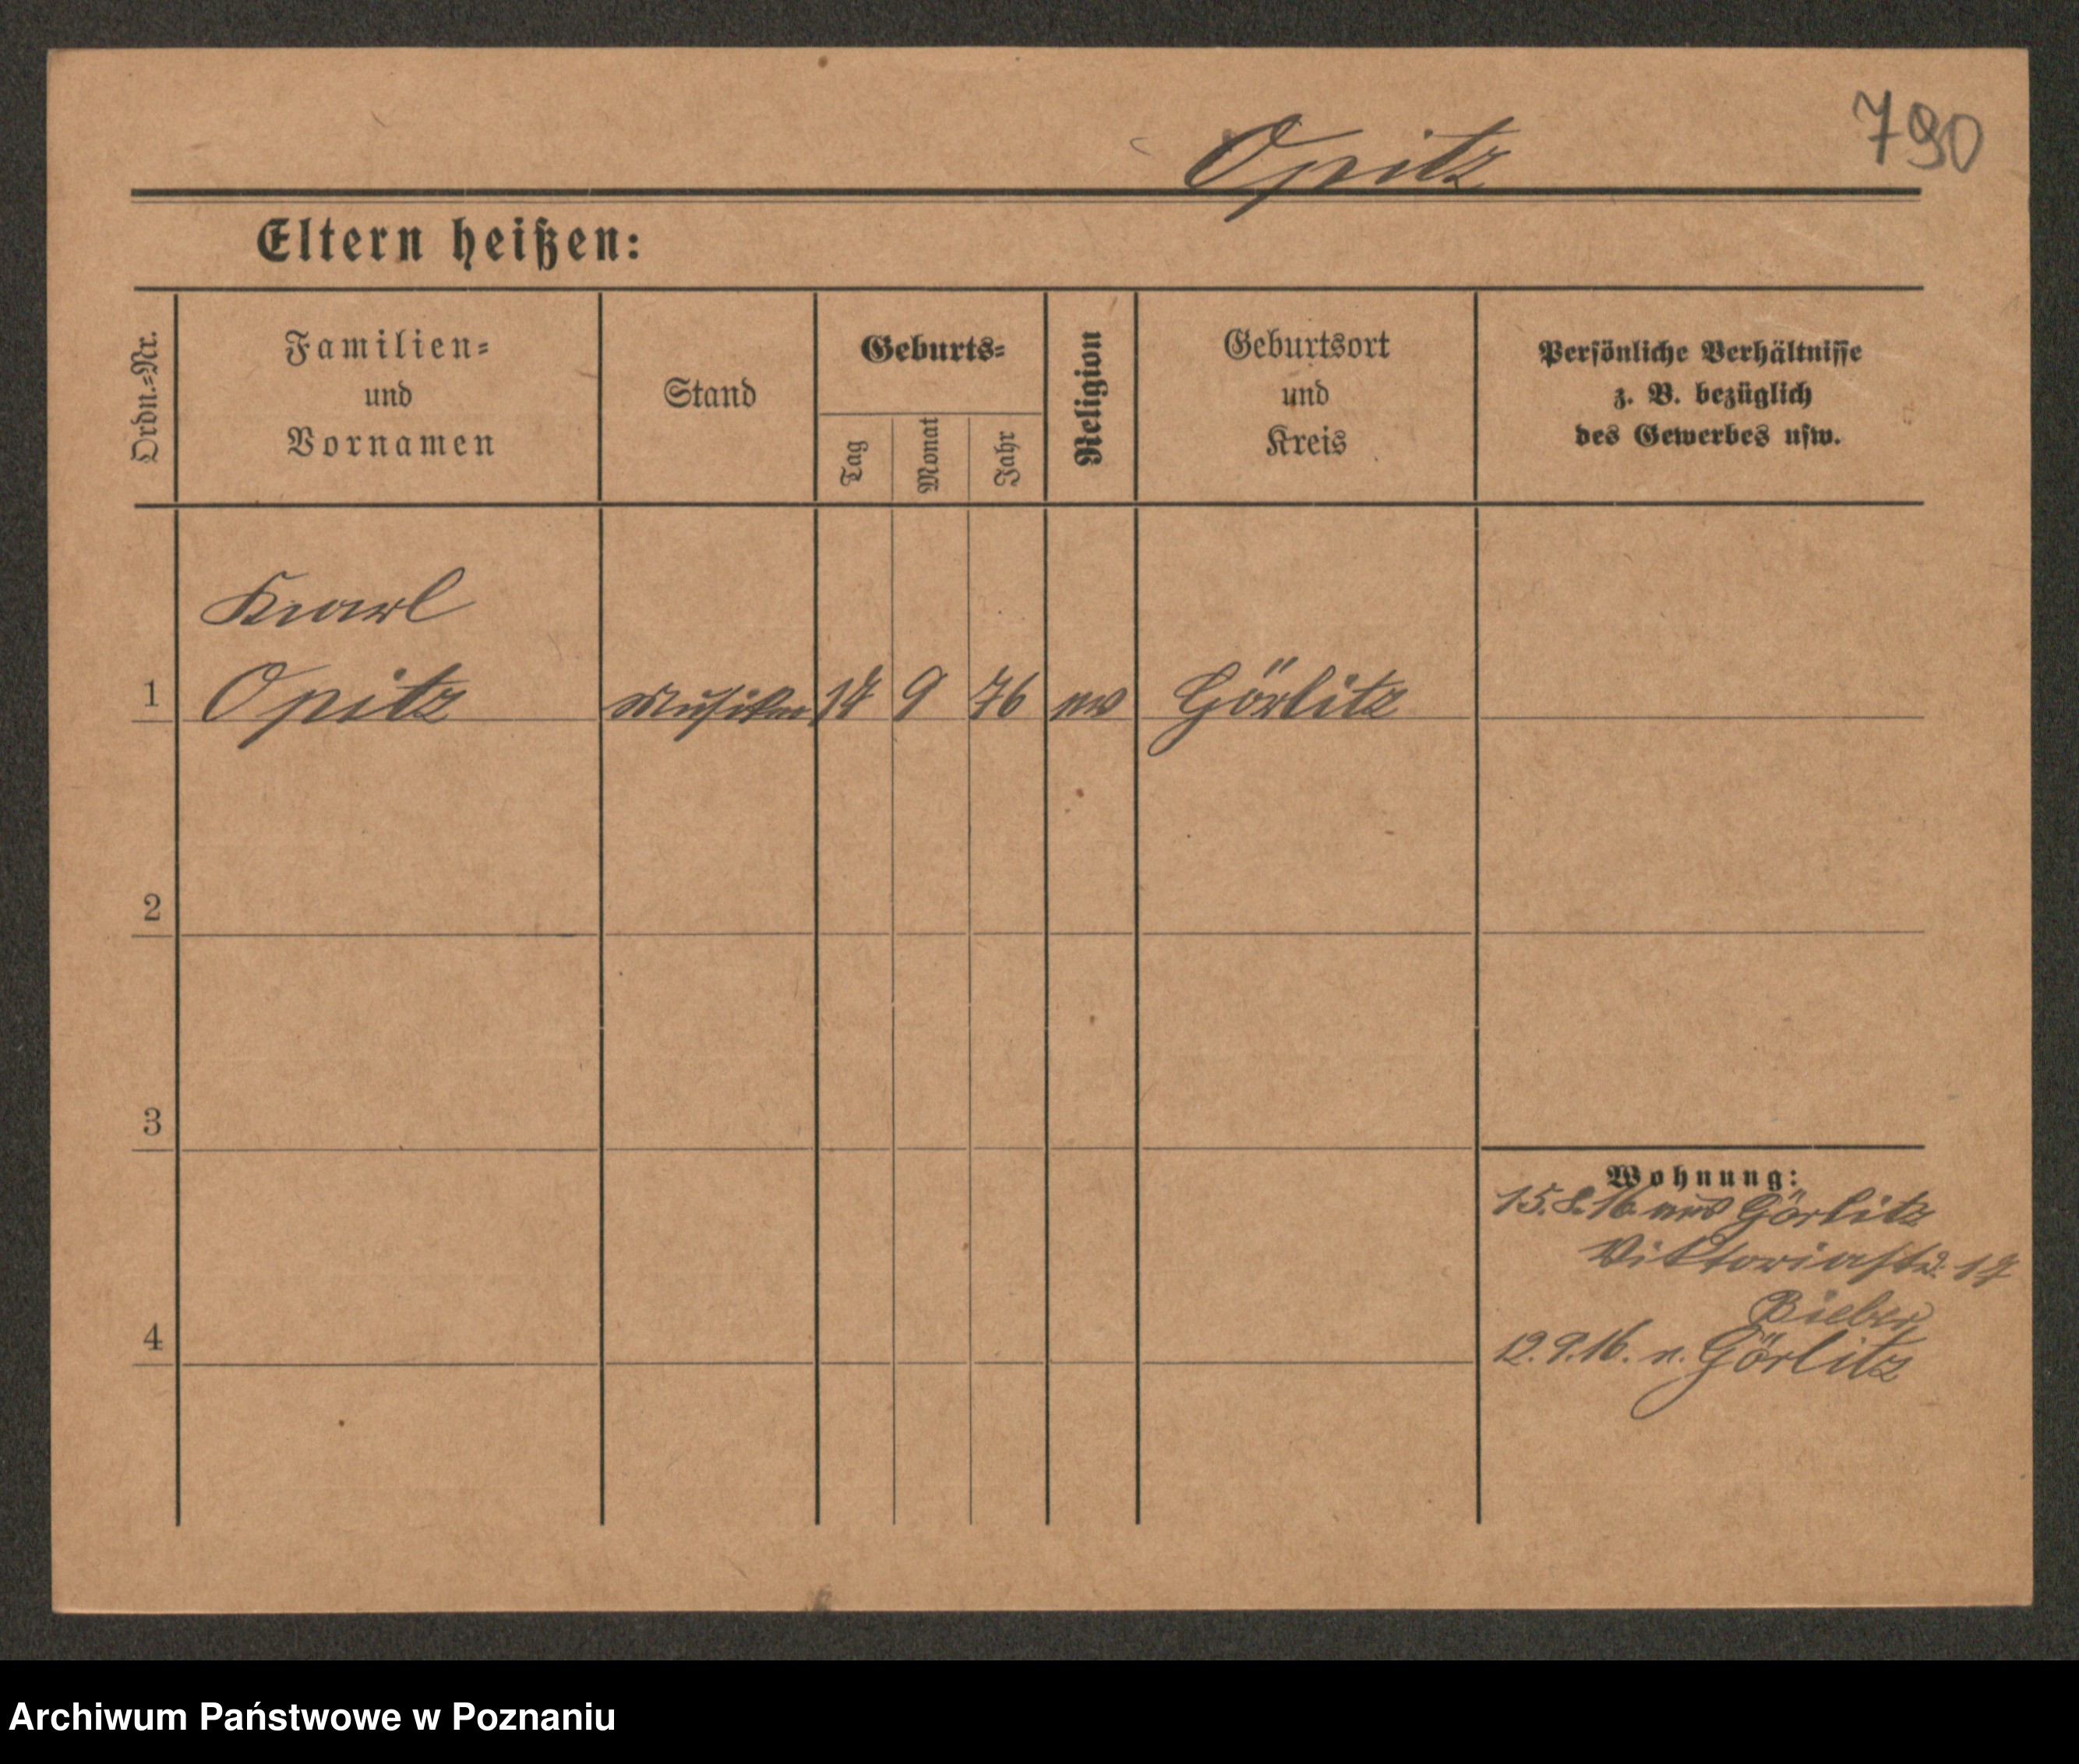 790
Opitz
Eltern heißen:
Ordn.-Nr.
Familien- und Vornamen
Stand
Geburts-
Tag
Monat
Jahr
Religion
Geburtsort und Kreis
Persönliche Verhältnisse
z. B. bezüglich
des Gewerbes usw.
Karl
1 Opitz Musiker 14 9 76 ev Görlitz
2
3
Wohnung:
15.8.16 aus Görlitz
Viktoriastr. 14
Bieber
4
12.9.16. n. Görlitz
Archiwum Państwowe w Poznaniu